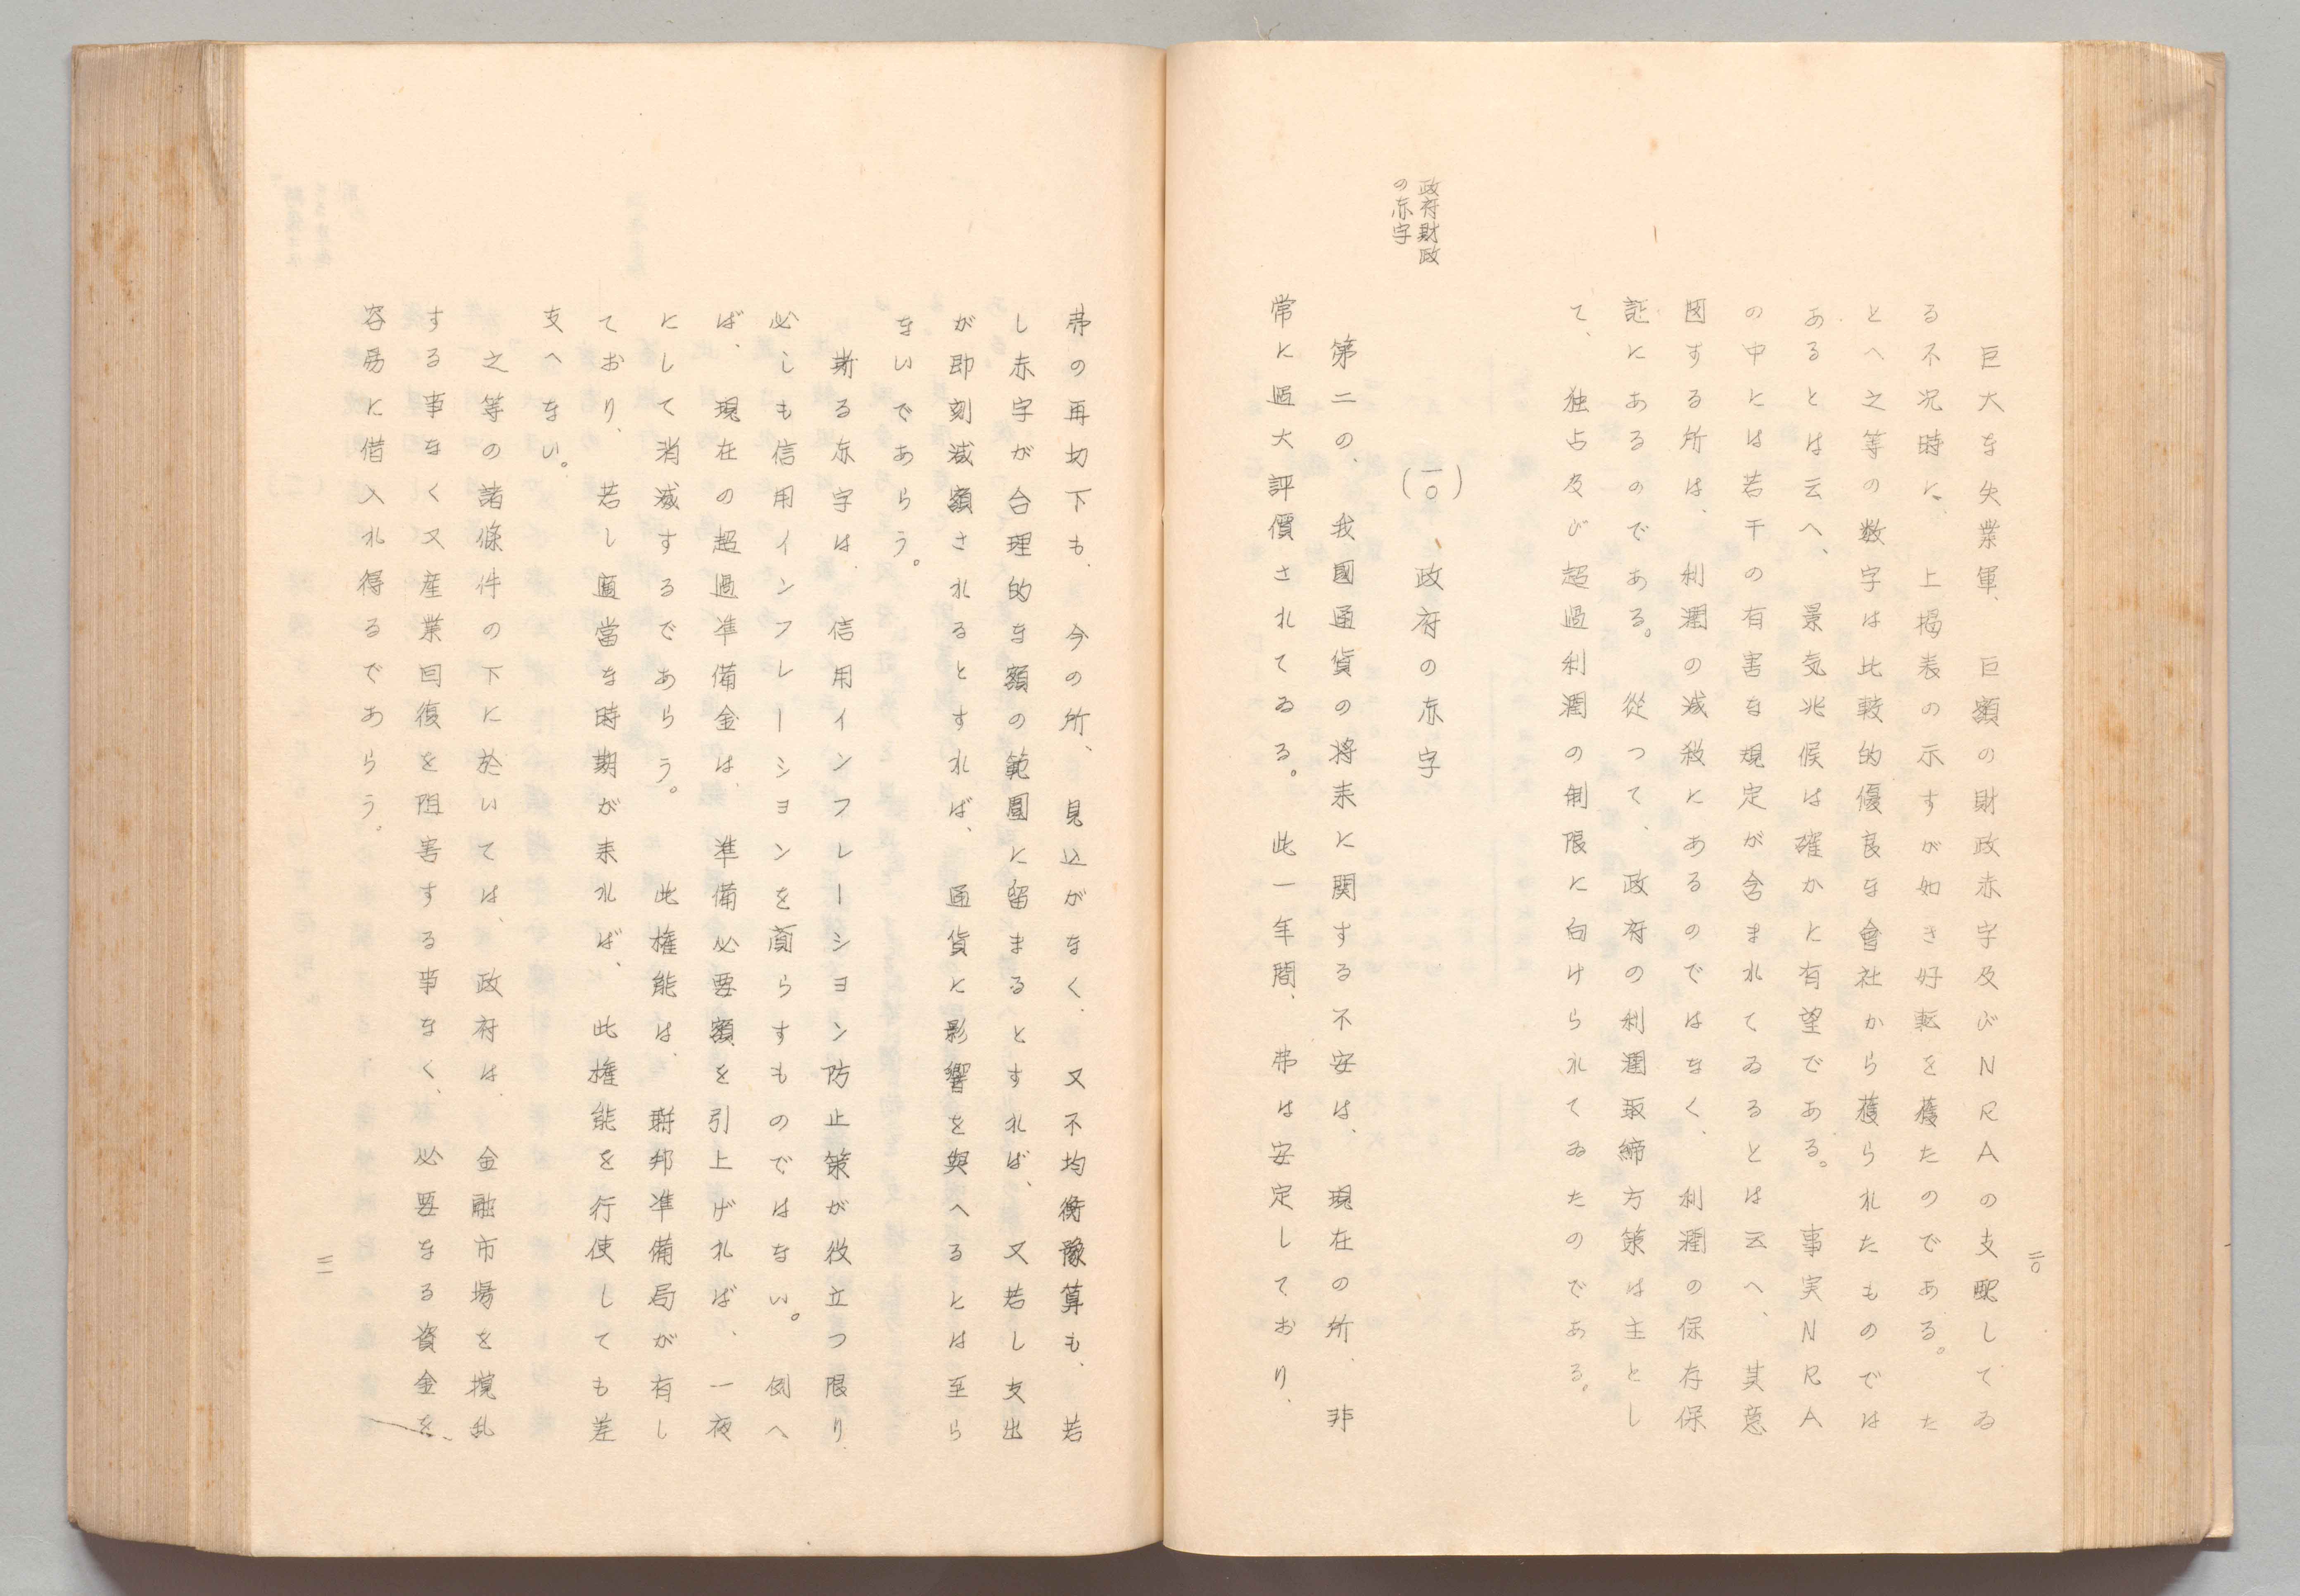 三〇
巨大な失業軍、巨額の財政赤字及びNRAの支配してゐ
る不況時に、上掲表の示すが如き好転を獲たのである。た
とへ之等の数字は比較的優良な會社から獲られたものでは
あるとは云へ、景気兆候は確かに有望である。事実NRA
の中には若干の有害な規定が含まれてゐるとは云へ、其意
図する所は、利潤の減殺にあるのではなく、利潤の保存保
証にあるのである。従つて、政府の利潤取締方策は主とし
て、独占及び超過利潤の制限に向けられてゐたのである。
政府財政
の赤字
(一〇)政府の赤字
第二の、我國通貨の将来に関する不安は、現在の所、非
常に過大評價されてゐる。此一年間、弗は安定しており、
弗の再切下も、今の所、見込がなく、又不均衡豫算も、若
し赤字が合理的な額の範圍に留まるとすれば、又若し支出
が即刻減額されるとすれば、通貨に影響を與へるとは至ら
ないであらう。
斯る赤字は、信用インフレーシヨン防止策が役立つ限り、
必しも信用インフレーシヨンを齎らすものではない。例へ
ば、現在の超過準備金は、準備必要額を引上げれば、一夜
にして消滅するであらう。此権能は、聯邦準備局が有し
ており、若し適當な時期が来れば、此権能を行使しても差
支へない。
之等の諸條件の下に於いては、政府は、金融市場を撹乱
する事なく又産業回復を阻害する事なく、必要なる資金を、
容易に借入れ得るであらう。
三一